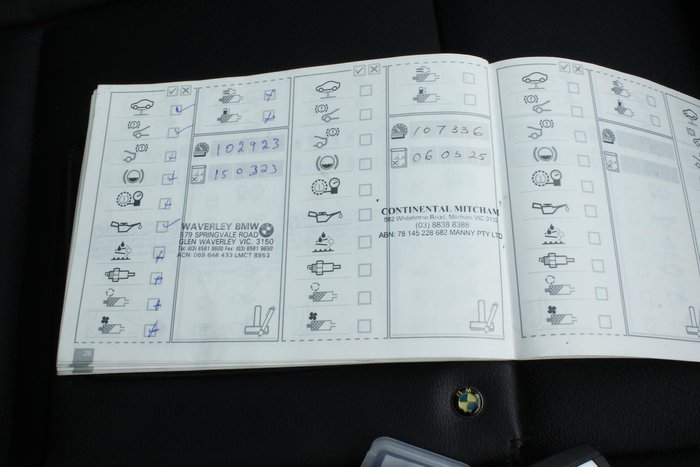 102923
150323
WAVERLEY BMW
579 SPRINGVALE ROAD
GLEN WAVERLEY VIC. 3150
Tel: (03) 8581 9888 Fax: (03) 8581 9899
ACN: 069 648 433 LMCT 8953
107336
060525
CONTINENTAL MITCHAM
582 Whitehorse Road, Mitcham VIC 3132
(03) 8838 8388
ABN: 78 145 228 682 MANNY PTY LTD
BMW